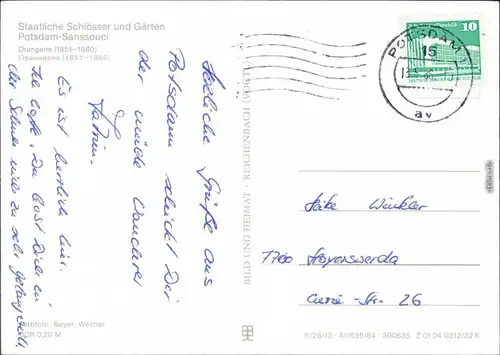 Staatliche Schlösser und Gärten
Potsdam-Sanssouci
Orangerie (1851-1860)
Оранжерея (1851-1860)
Herzliche Grüße aus
Potsdam schickt Dir
der müde Wanderer
Es ist herrlich hier.
Ich hoffe, Du hast Dich in
der Schule nicht zu sehr gelangweilt.
Farbfoto: Beyer, Weimar
DDR 0,20 M
BILD UND HEIMAT · REICHENBACH (VOGTL)
10
POTSDAM
15
av
Winkler
7700 Hoyerswerda
Curie-Str. 26
III/26/13 · A1/635/84 · 300635 Z 01 04 0312/32 K